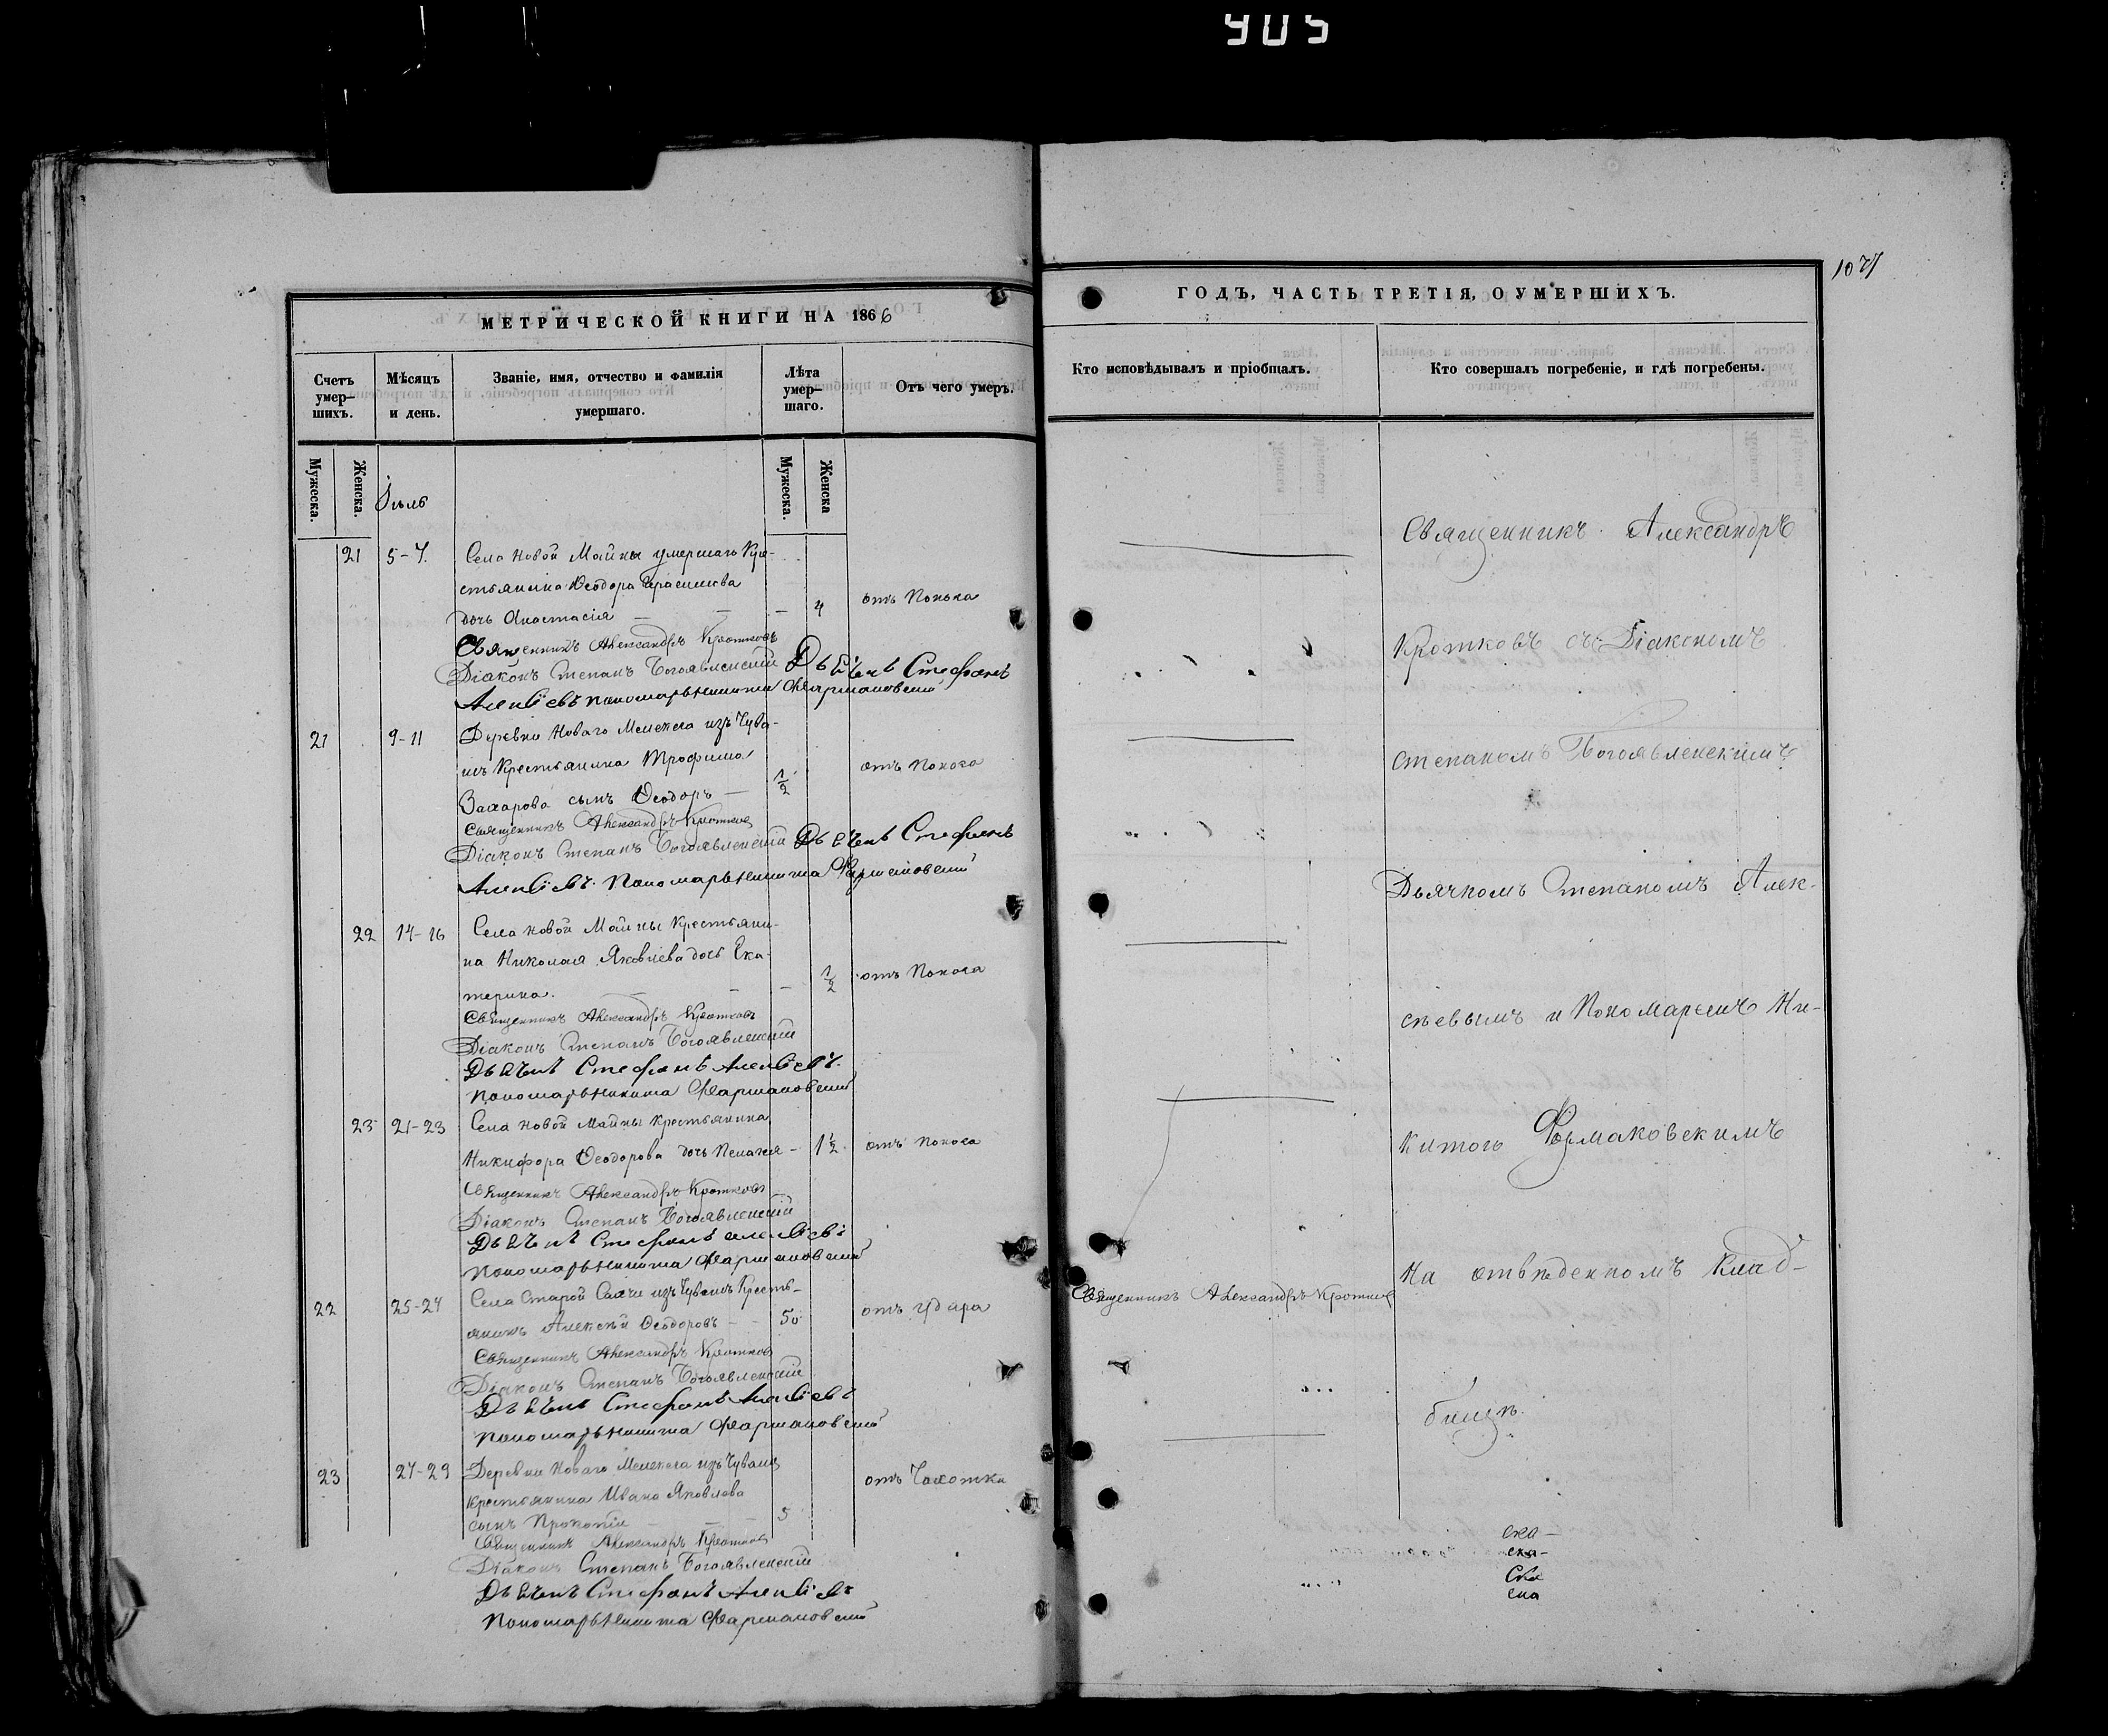 905
1077
МЕТРИЧЕСКОЙ КНИГИ НА 1866
Счетъ умер—шихъ.
Мѣсяцъ и день.
Званіе, имя, отчество и фамилія умершаго.
Лѣта умер—шаго.
Отъ чего умеръ.
Мужеска.
Женска.
Мужеска.
Женска
Іюль
21 5-7. Села Новой Майны умершаго Кре-
стьянина Ѳеодора Герасимова
дочь Анастасія — — 4 отъ Поноса
Священникъ Александръ Кротковъ
Діаконъ Степанъ Богоявленскій Дьячекъ Стефанъ
Алексѣевъ пономарь Никита Фармаковскій
21 9-11 Деревни Новаго Мелекеса изъ Чува-
шъ Крестьянина Трофима
Захарова сынъ Ѳеодоръ — 1/2 отъ Поноса
Священникъ Александръ Кротковъ
Діаконъ Степанъ Богоявленскій Дьячекъ Стефанъ
Алексѣевъ. Пономарь Никита Фармаковскій
22 14-16 Села Новой Майны Крестьяни-
на Николая Яковлева дочь Ека-
терина. — — — 1/2 отъ Поноса
Священникъ Александръ Кротковъ
Діаконъ Степанъ Богоявленскій
Дьячекъ Стефанъ Алексѣевъ.
Пономарь Никита Фармаковскій
23 21-23 Села Новой Майны Крестьянина
Никифора Ѳеодорова дочь Пелагея — 1 1/2 отъ Поноса
Священникъ Александръ Кротковъ
Діаконъ Степанъ Богоявленскій
Дьячекъ Стефанъ Алексѣевъ
Пономарь Никита Фармаковскій
22 25-27 Села Старой Сахчи изъ Чувашъ Кресть-
янинъ Алексѣй Ѳеодоровъ — — 50 отъ удара
Священникъ Александръ Кротковъ
Діаконъ Степанъ Богоявленскій
Дьячекъ Стефанъ Алексѣевъ
Пономарь Никита Фармаковскій
23 27-29 Деревни Новаго Мелекеса изъ Чувашъ
Крестьянина Ивана Яковлева
сынъ Прокопій — — — 5 отъ Чахотки
Священникъ Александръ Кротковъ
Діаконъ Степанъ Богоявленскій
Дьячекъ Стефанъ Алексѣевъ
Пономарь Никита Фармаковскій
ГОДЪ, ЧАСТЬ ТРЕТІЯ, О УМЕРШИХЪ.
Кто исповѣдывалъ и пріобщалъ.
Кто совершалъ погребеніе, и гдѣ погребены.
Священникъ Александръ
Кротковъ съ Діакономъ
Степаномъ Богоявленскимъ
Дьячкомъ Степаномъ Алек-
сѣевымъ и Пономаремъ Ни-
китою Фармаковскимъ
На отвѣденномъ Клад-
бищѣ.
Священникъ Александръ Кротковъ